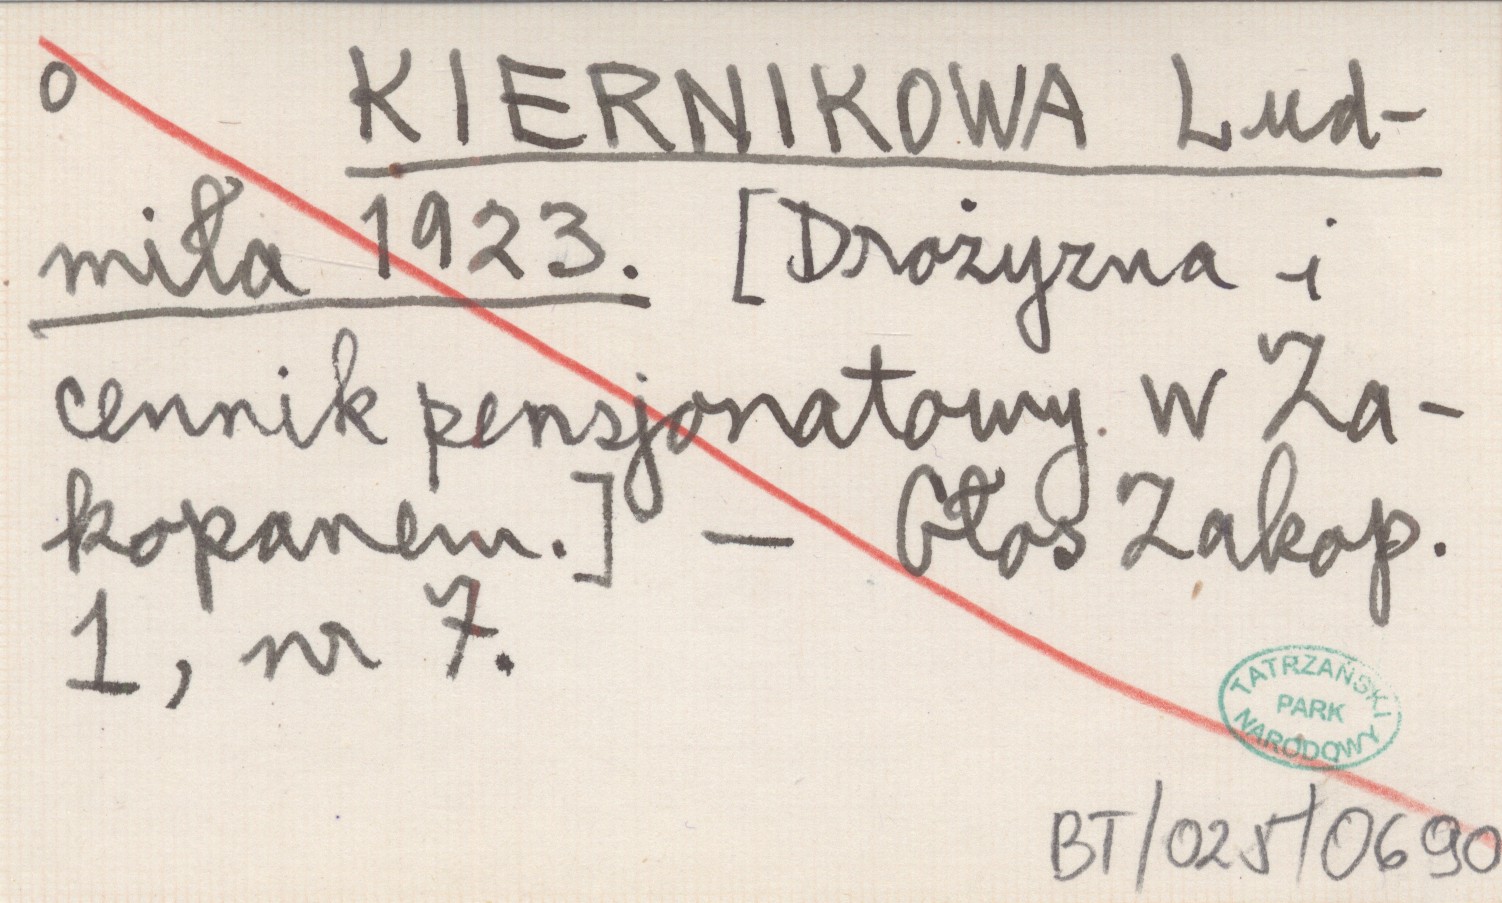 o KIERNIKOWA Lud-
miła 1923. [Drożyzna i
cennik pensjonatowy w Za-
kopanem.] — Głos Zakop.
1, nr 7.
TATRZAŃSKI
PARK
NARODOWY
BT/025/0690